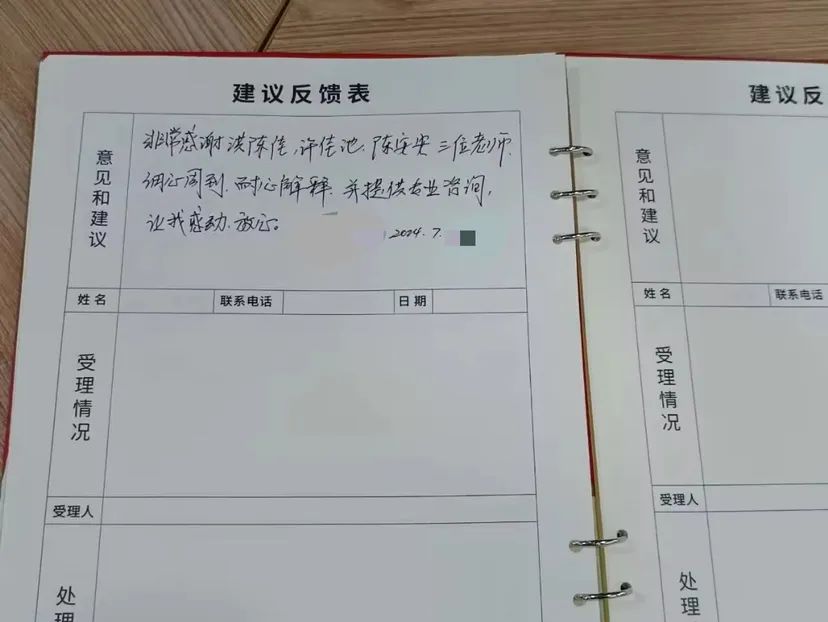 建议反馈表
意见和建议
非常感谢洪陈佳,许佳池、陈安安三位老师.
细心周到、耐心解释、并提供专业咨询,
让我感动、放心。
2024.7.
姓名
联系电话
日期
受理情况
受理人
处理
建议反
意见和建议
姓名
联系电话
受理情况
受理人
处理